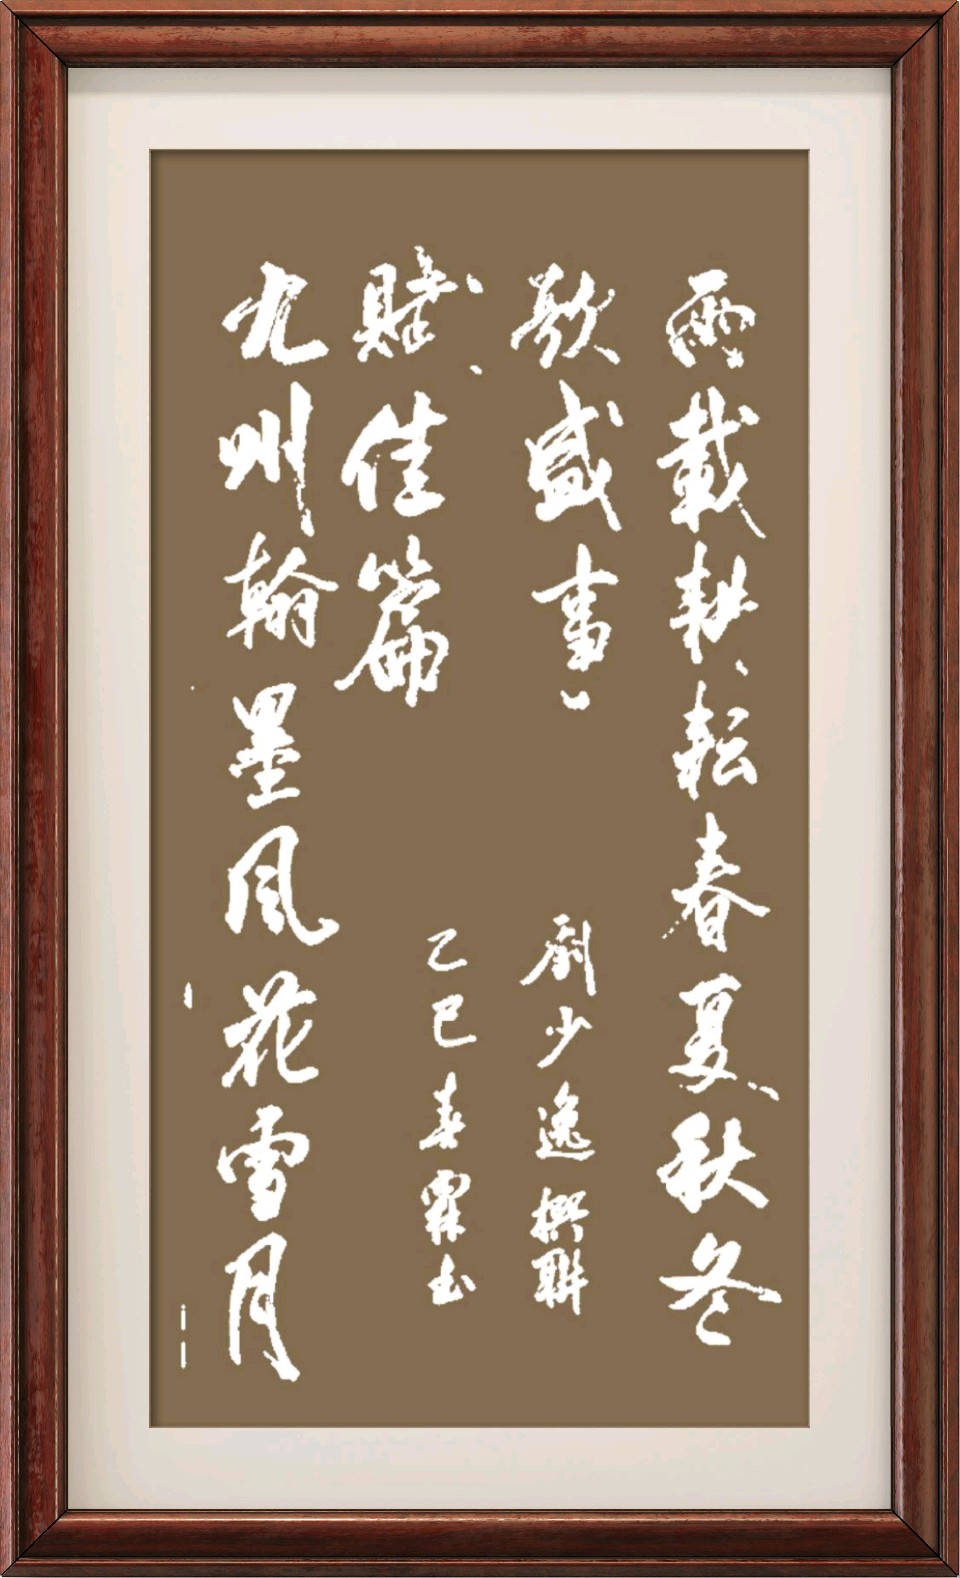 兩載耕耘春夏秋冬
歌盛事
九州翰墨風花雪月
賦佳篇
劉少逸撰聯
乙巳春霖书